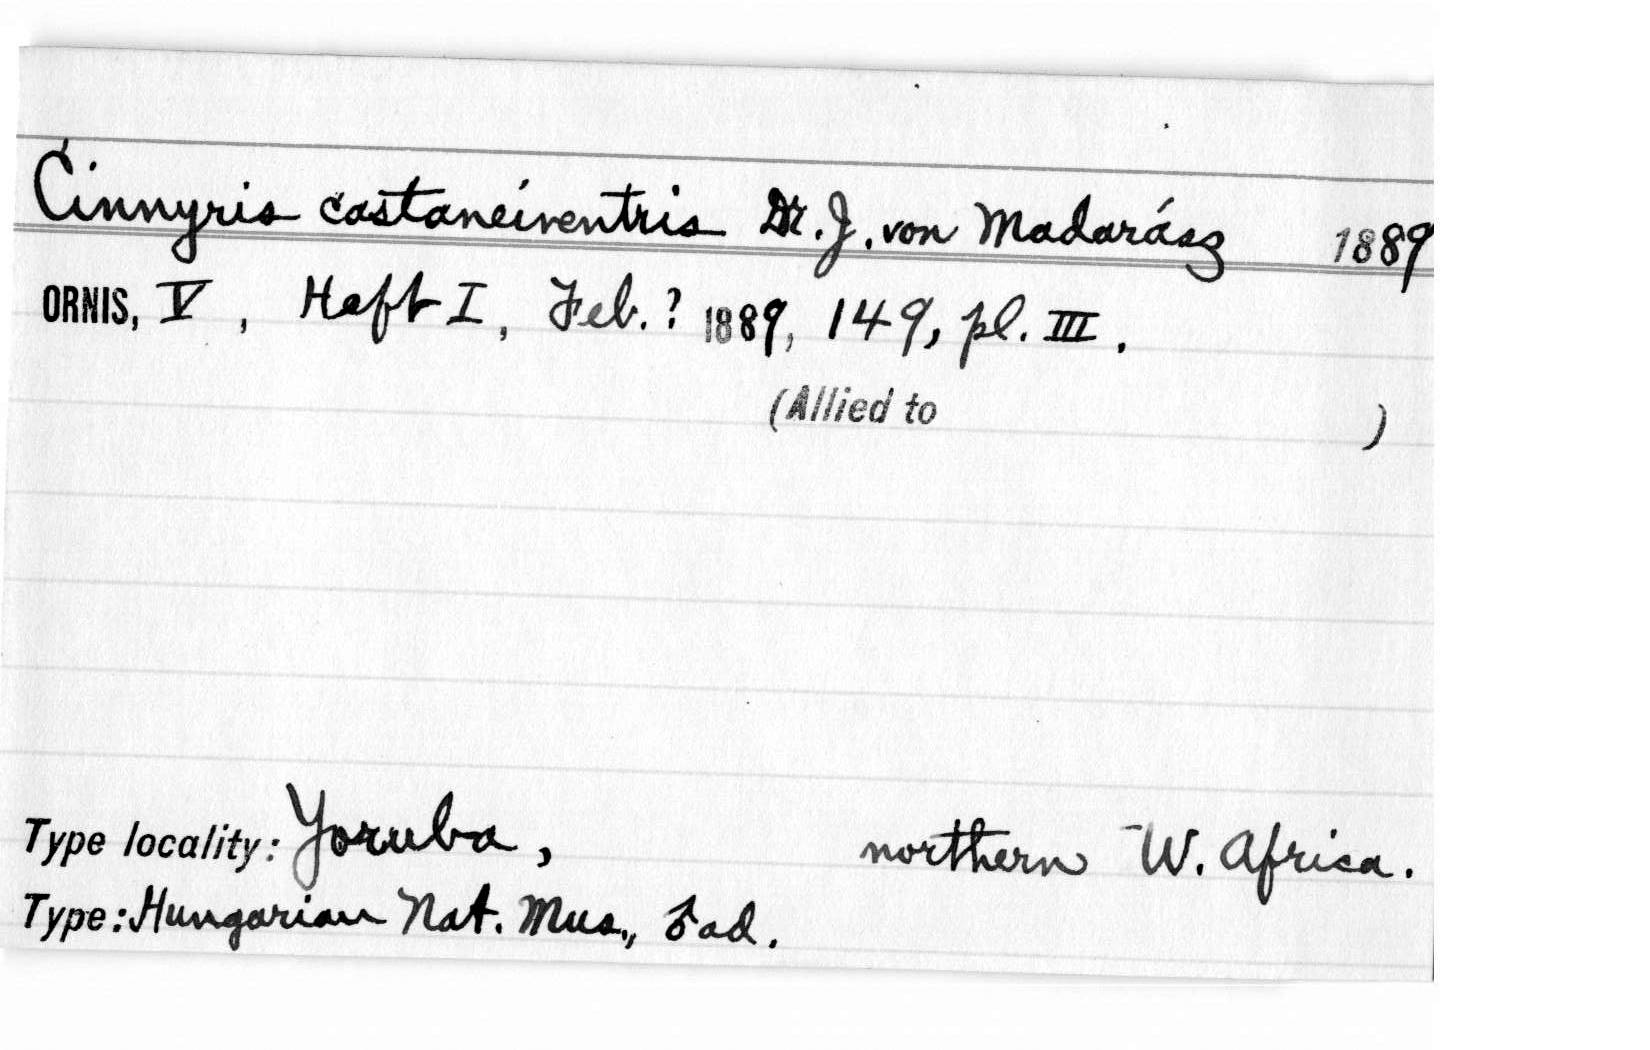 Cinnyris castaneiventris Dr. J. von Madarász 1889
ORNIS, V, Heft I, Feb.? 1889, 149, pl. III.
(Allied to )
Type locality: Yoruba, northern W. Africa.
Type: Hungarian Nat. Mus., ♂ ad.